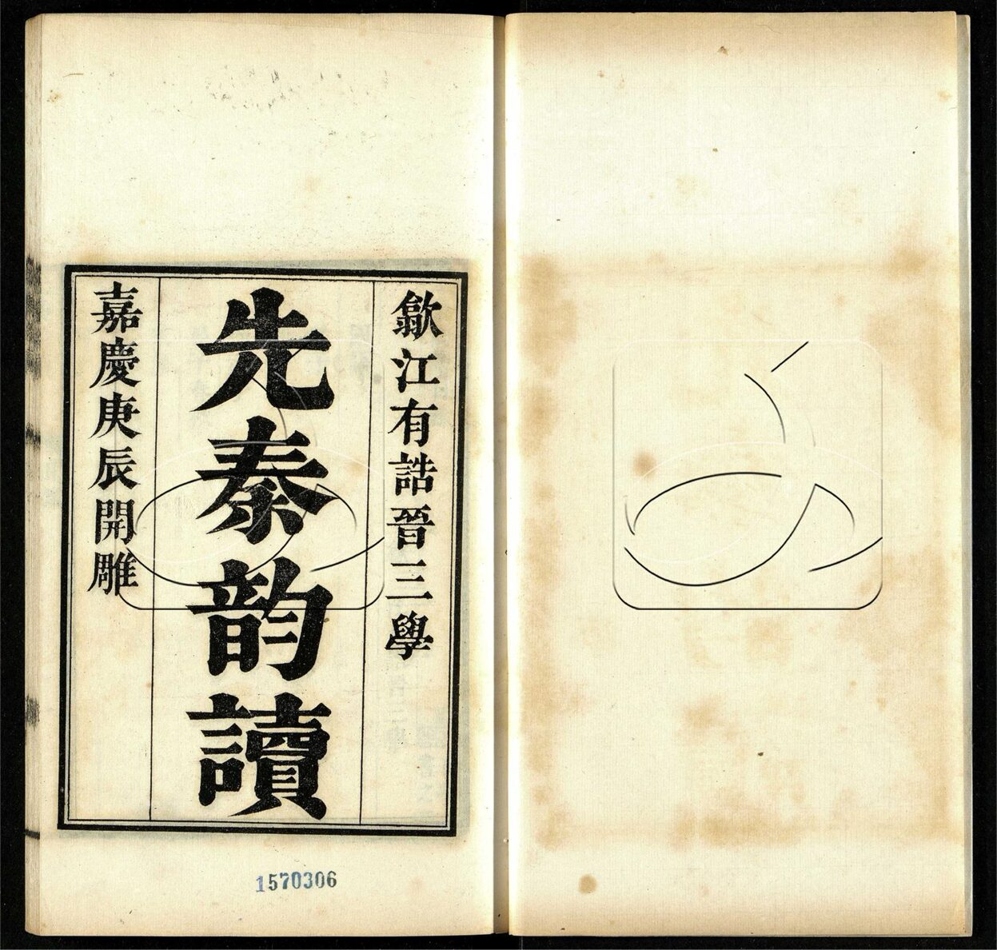 歙江有誥晉三學
先秦韵讀
嘉慶庚辰開雕
1570306